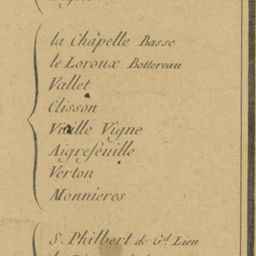 la Chapelle Basse
le Loroux Bottereau
Vallet
Clisson
Vieille Vigne
Aigrefeuille
Verton
Monnieres
S. Philbert de Gd. Lieu